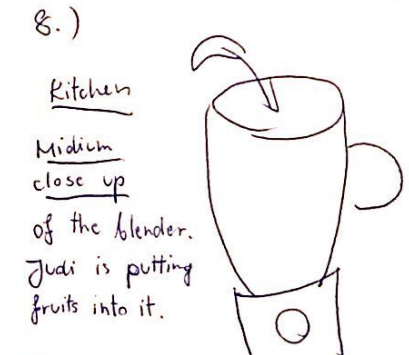 8.)
Kitchen
Midium
close up
of the blender.
Judi is putting
fruits into it.